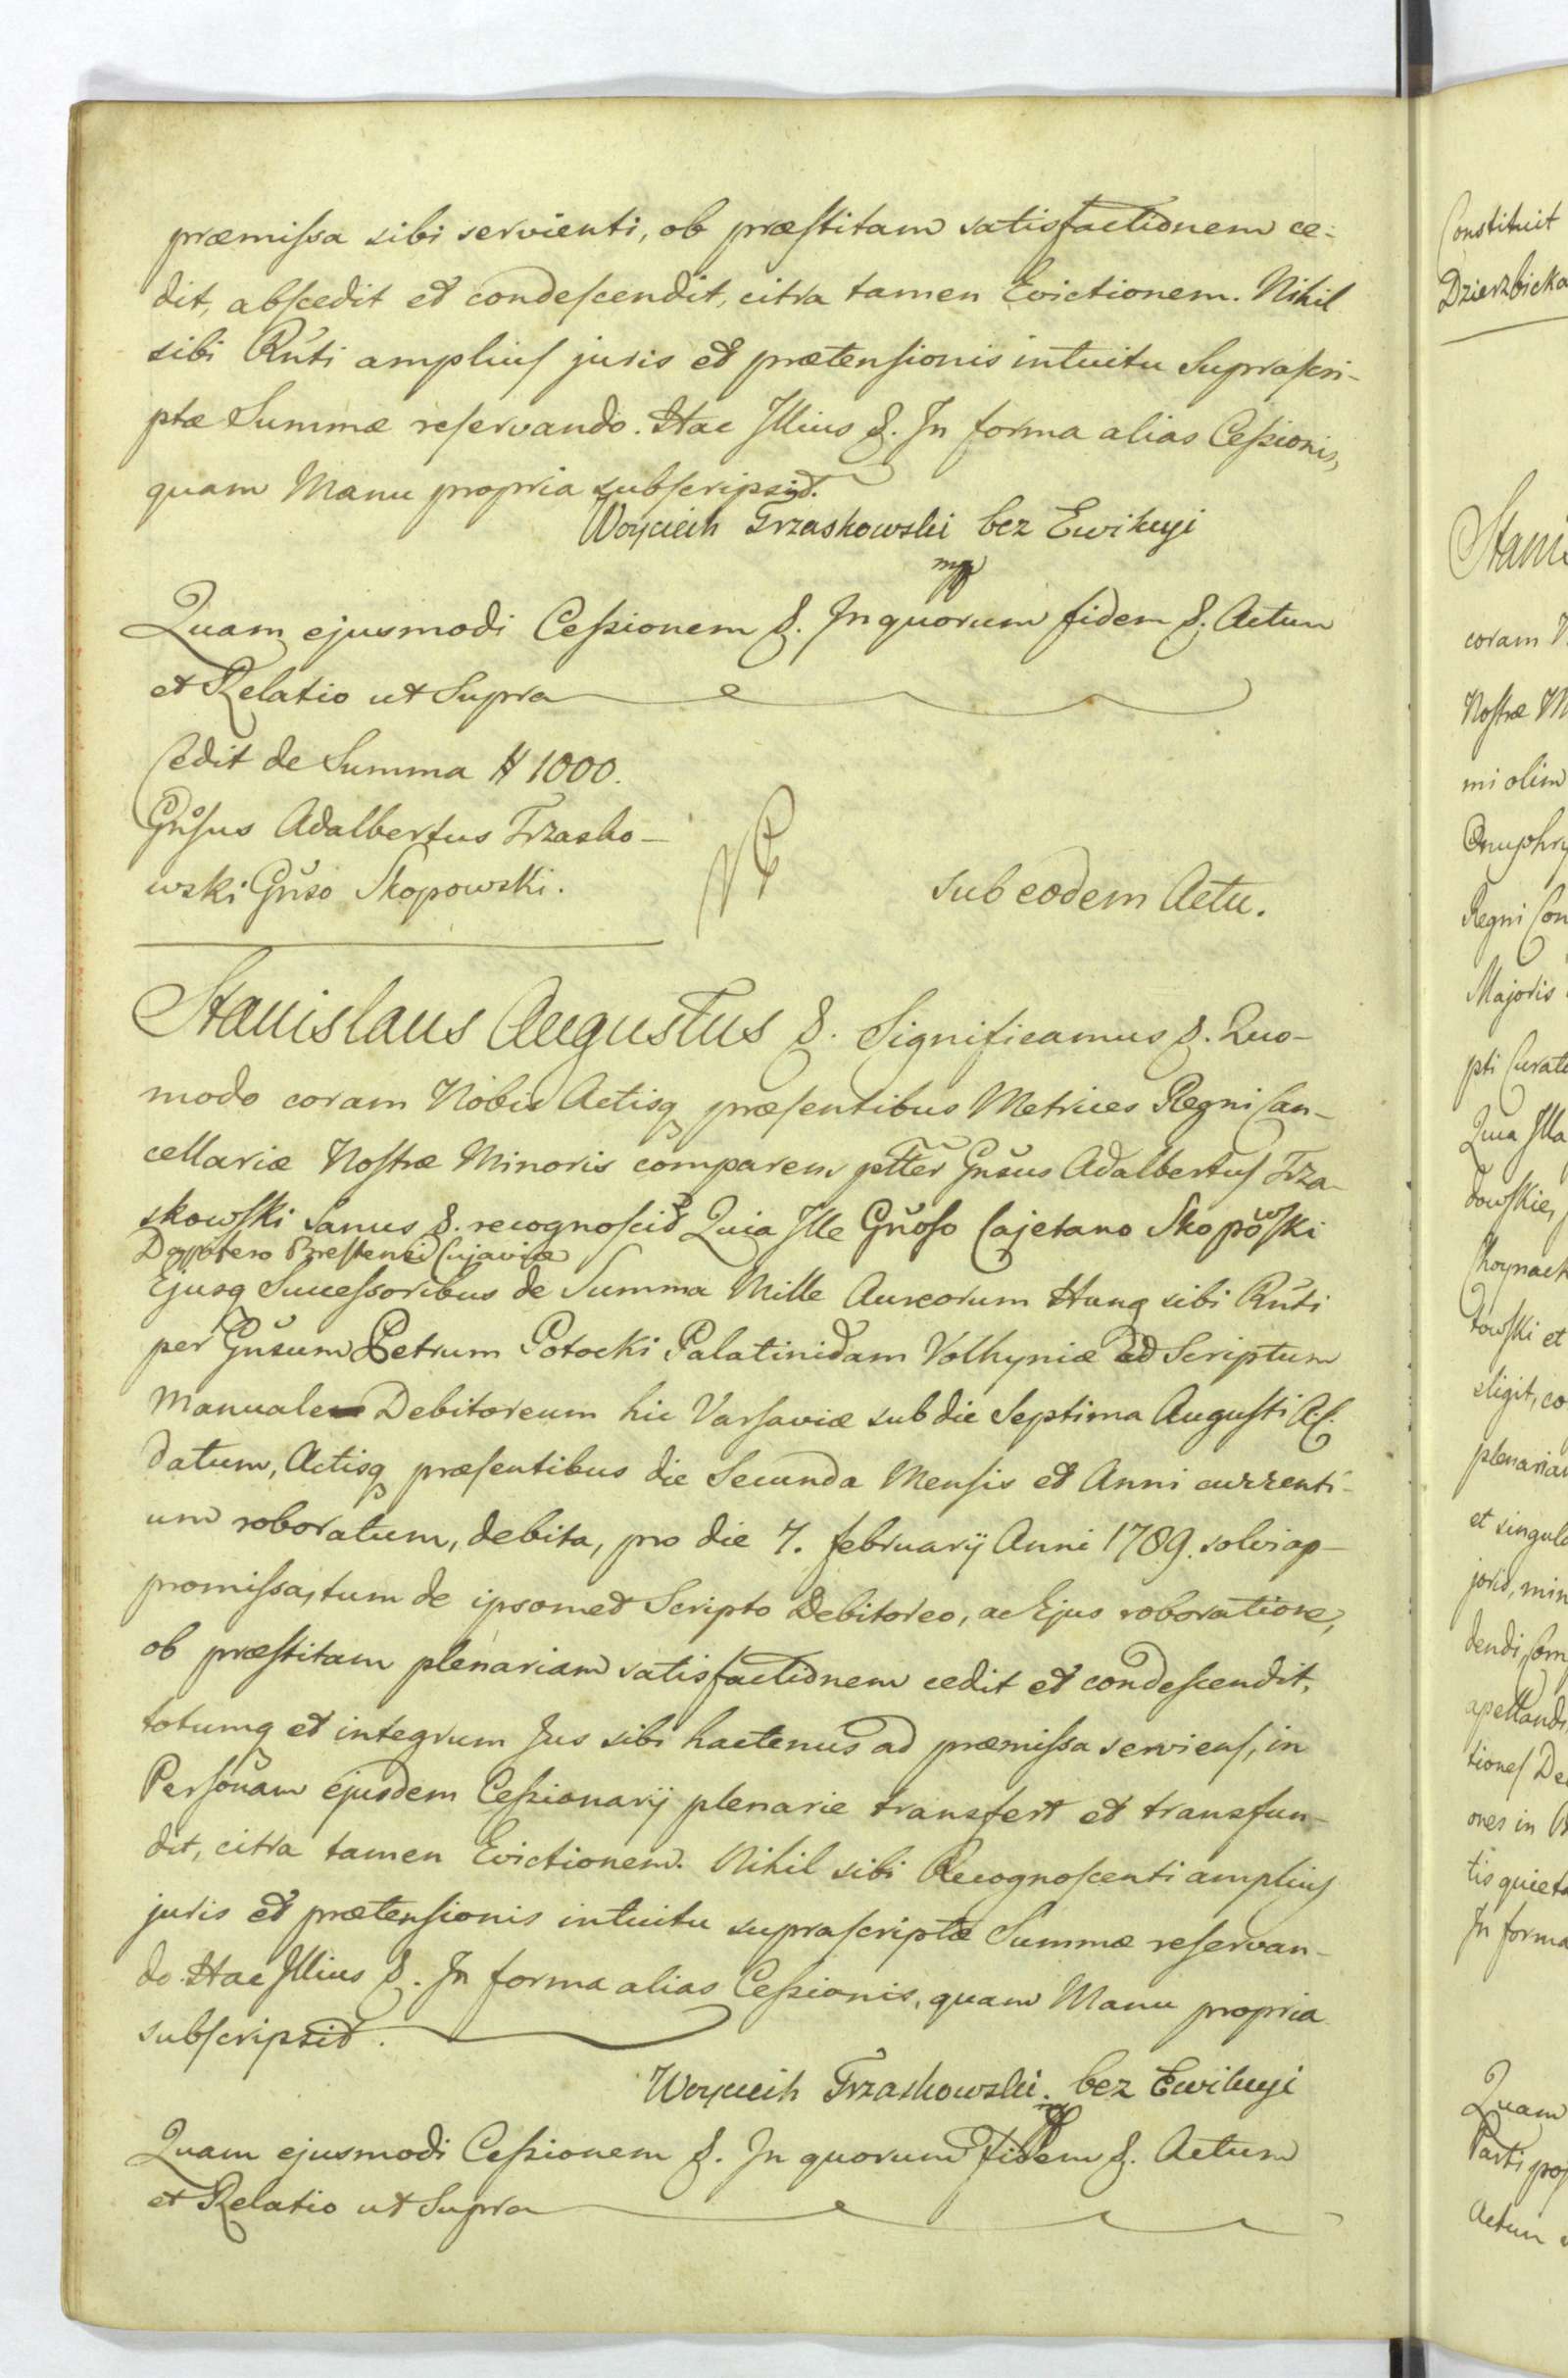 præmiſsa sibi servienti, ob præſtitam satisfactionem ce-
dit, abſcedit et condeſcendit, citra tamen Evictionem. Nihil
sibi Rnti ampliuſ juris et prætenſionis intuitu Supraſcri-
ptæ Summæ reſervando. Hac Illius &. In forma alias Ceſsionis,
quam Manu propria subſcripsit.
Woyciech Trzaskowski bez Ewikcyi
mp
Quam ejusmodi Ceſsionem &. In quorum fidem &. Actum
et Relatio ut Supra
Cedit de Summa # 1000.
Gnſus Adalbertus Trzasko-
wski Gnso Skopowski.
sub eodem Actu.
Stanislaus Augustus &. Significamus &. Quo-
modo coram Nobis Actisq præſentibus Metrices Regni Can-
cellariæ Noſtræ Minoris comparens pltter Gnsus Adalbertuſ Trza-
skowſki Sanus &. recognoſcit Quia Ille Gnoſo Cajetano Skopowſki
Dapifero Breſtensi Cujaviæ
Ejusq Succeſsoribus de Summa Mille Aureorum Hung sibi Rnti
per Gnsum Petrum Potocki Palatinidam Volhyniæ ad Scriptum
Manuale Debitoreum hic Varſaviæ sub die Septima Auguſti A. C.
datum, Actisq præſentibus die Secunda Menſis et Anni currenti-
um roboratum, debita, pro die 7. februarij Anni 1789. solvi ap-
promiſsa, tum de ipsomet Scripto Debitoreo, ac Ejus roboratione,
ob præſtitam plenariam satisfactionem cedit et condeſcendit,
totumq et integrum Jus sibi hactenus ad præmiſsa servienſ, in
Perſonam ejusdem Ceſsionarij plenarie transfert et transfun-
dit, citra tamen Evictionem. Nihil sibi Recognoſcenti ampliuſ
juris et prætenſionis intuitu supraſcriptæ Summæ reſervan-
do. Hac Illius &. In forma alias Ceſsionis, quam Manu propria
subſcripsit.
Woyciech Trzaskowski. bez Ewikcyi
mp
Quam ejusmodi Ceſsionem &. In quorum fidem &. Actum
et Relatio ut Supra
Constituit
Dzierzbicka
Stanis
coram
Noſtræ M
mi olim
Onuphry
Regni Con
Majoris
pti Curato
Quia Illa
dowſkie,
Choynack
dowſki et
eligit, co
plenariam
et singula
joris, min
dendi, Com
apellandi
tioneſ De
ones in
tis quieta
In forma
Quam
Parti prop
Actum